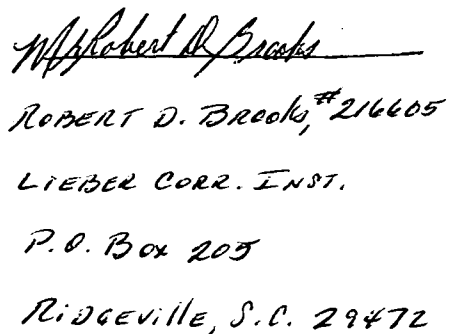 Mr Robert D. Brooks
ROBERT D. Brooks, #216605
LIEBER CORR. INST.
P.O. Box 205
RiDGEville, S.C. 29472